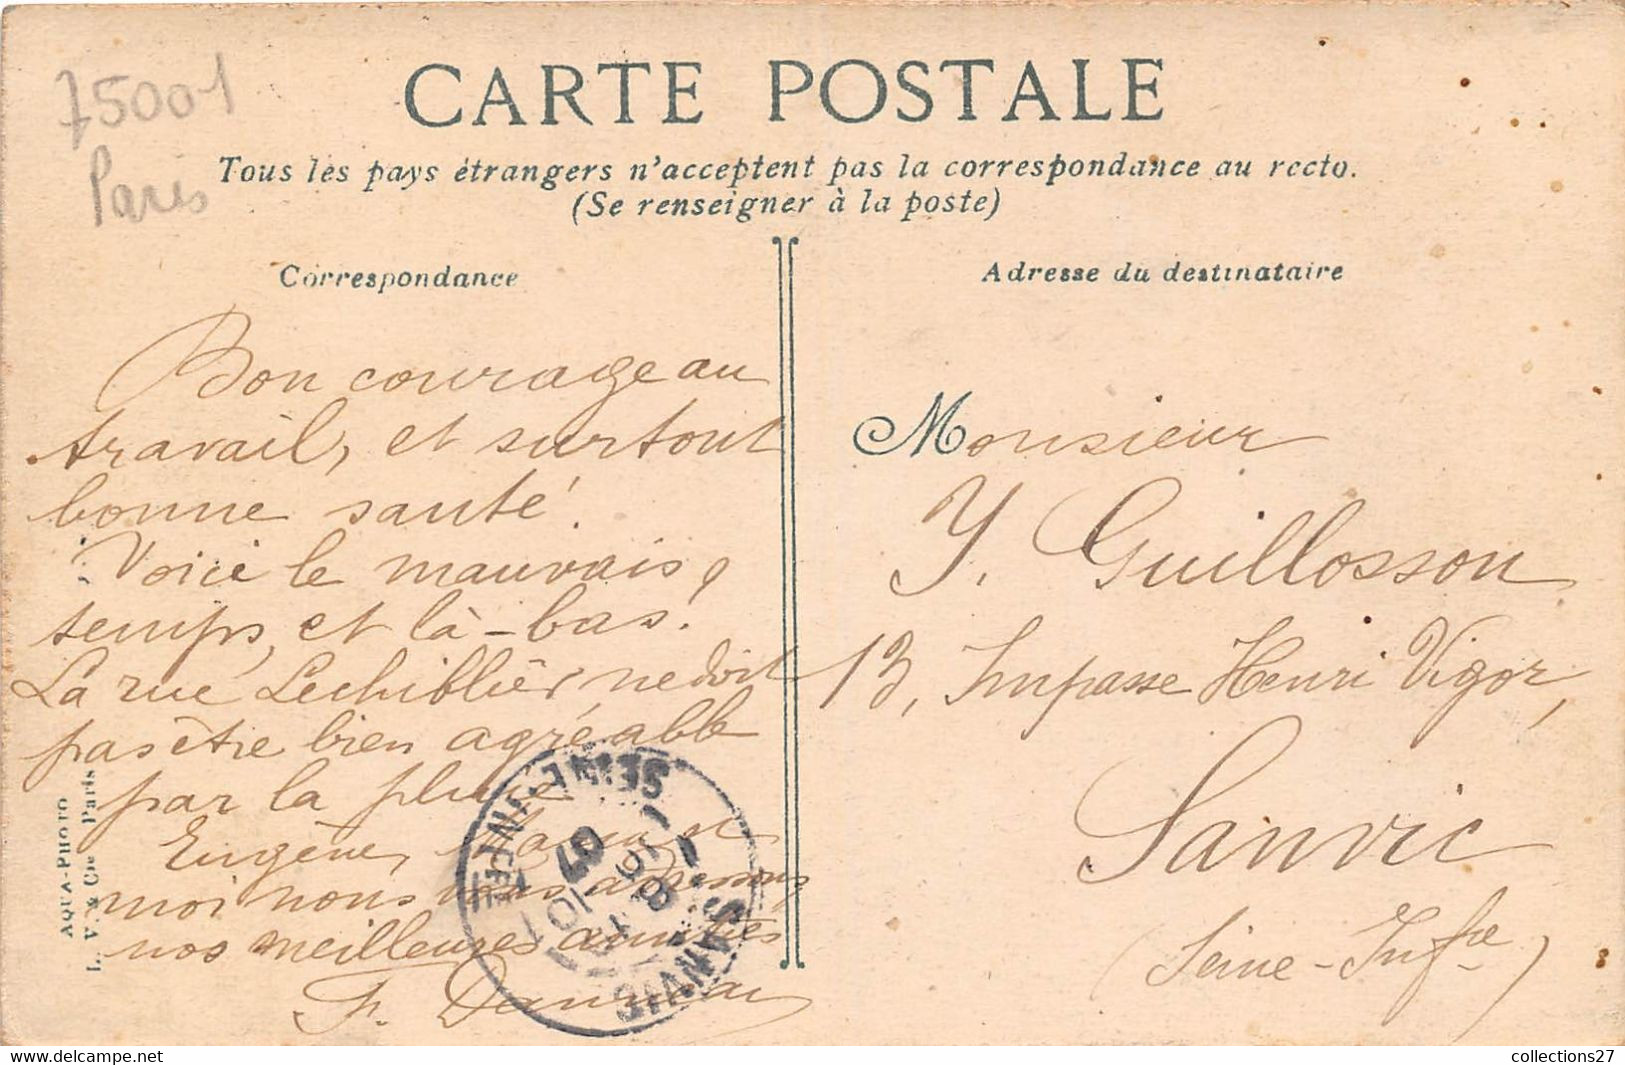 75001
Paris
CARTE POSTALE
Tous les pays étrangers n'acceptent pas la correspondance au recto.
(Se renseigner à la poste)
Correspondance
Bon courage au
travail, et surtout
bonne santé!
Voici le mauvais
temps, et là-bas!
La rue Lechiblier ne doit
pas être bien agréable
par la pluie
Eugène, et
moi nous vous adressons
nos meilleures amitiés
F.
Adresse du destinataire
Monsieur
Y. Guillosson
13, Impasse Henri Vigor,
Sanvic
(Seine-Infre)
AQUA-PHOTO
L. V. & Cie Paris
SANVIC
SEINE-INFRE
07
collections27